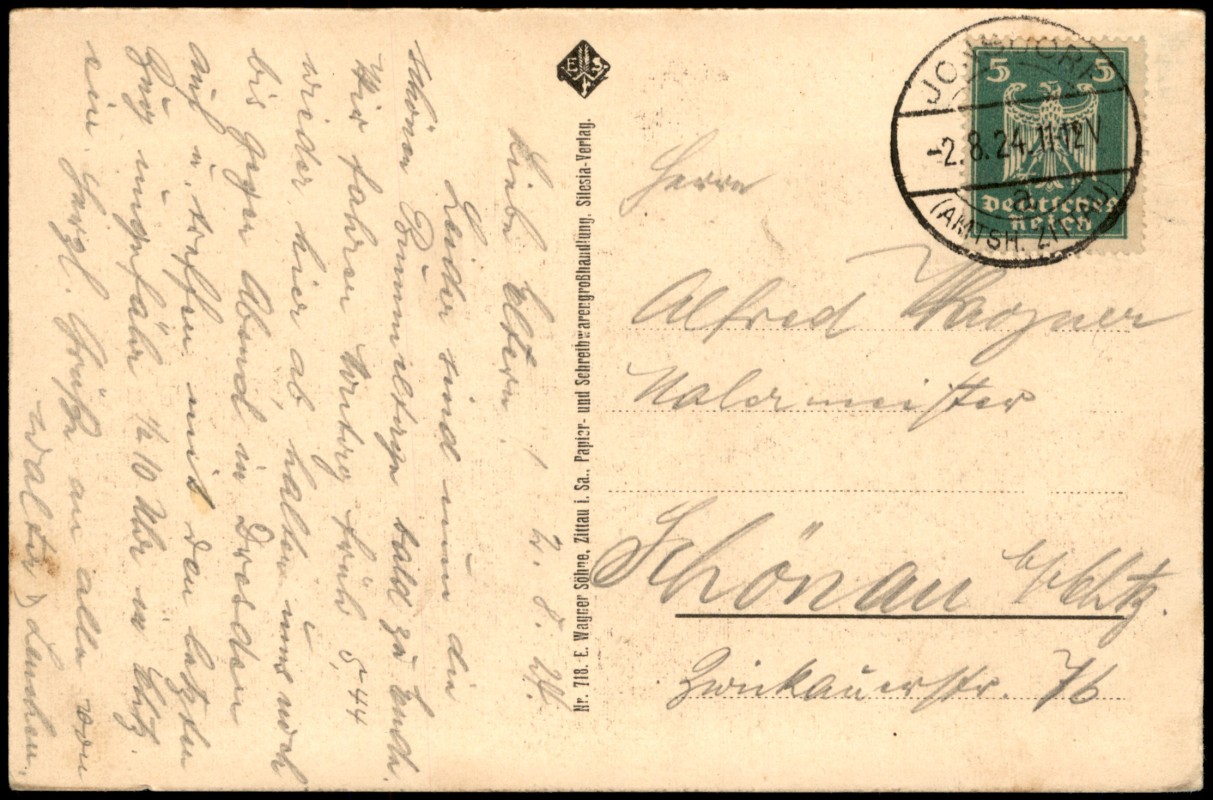 Liebe Eltern! 2. 8. 24.
Leider sind nun die
schönen Bummeltage bald zu Ende.
Wir fahren Montag früh 5,44
wieder hier ab, halten uns noch
bis gegen Abend in Dresden
auf u. treffen mit den letzten
Zug ungefähr 1/2 10 Uhr in Chtz.
ein. Herzl. Grüße an alle von
Walter u. Lenchen.
E S
Nr. 718. E. Wagner Söhne, Zittau i. Sa., Papier- und Schreibwarengroßhandlung. Silesia-Verlag.
JONSDORF
-2.8.24.11-12V
(AMTSH. ZITTAU)
5 5
Deutsches
Reich
Herrn
Alfred Wagner
Malermeister
Schönau b/Chtz.
Zwickauerstr. 76